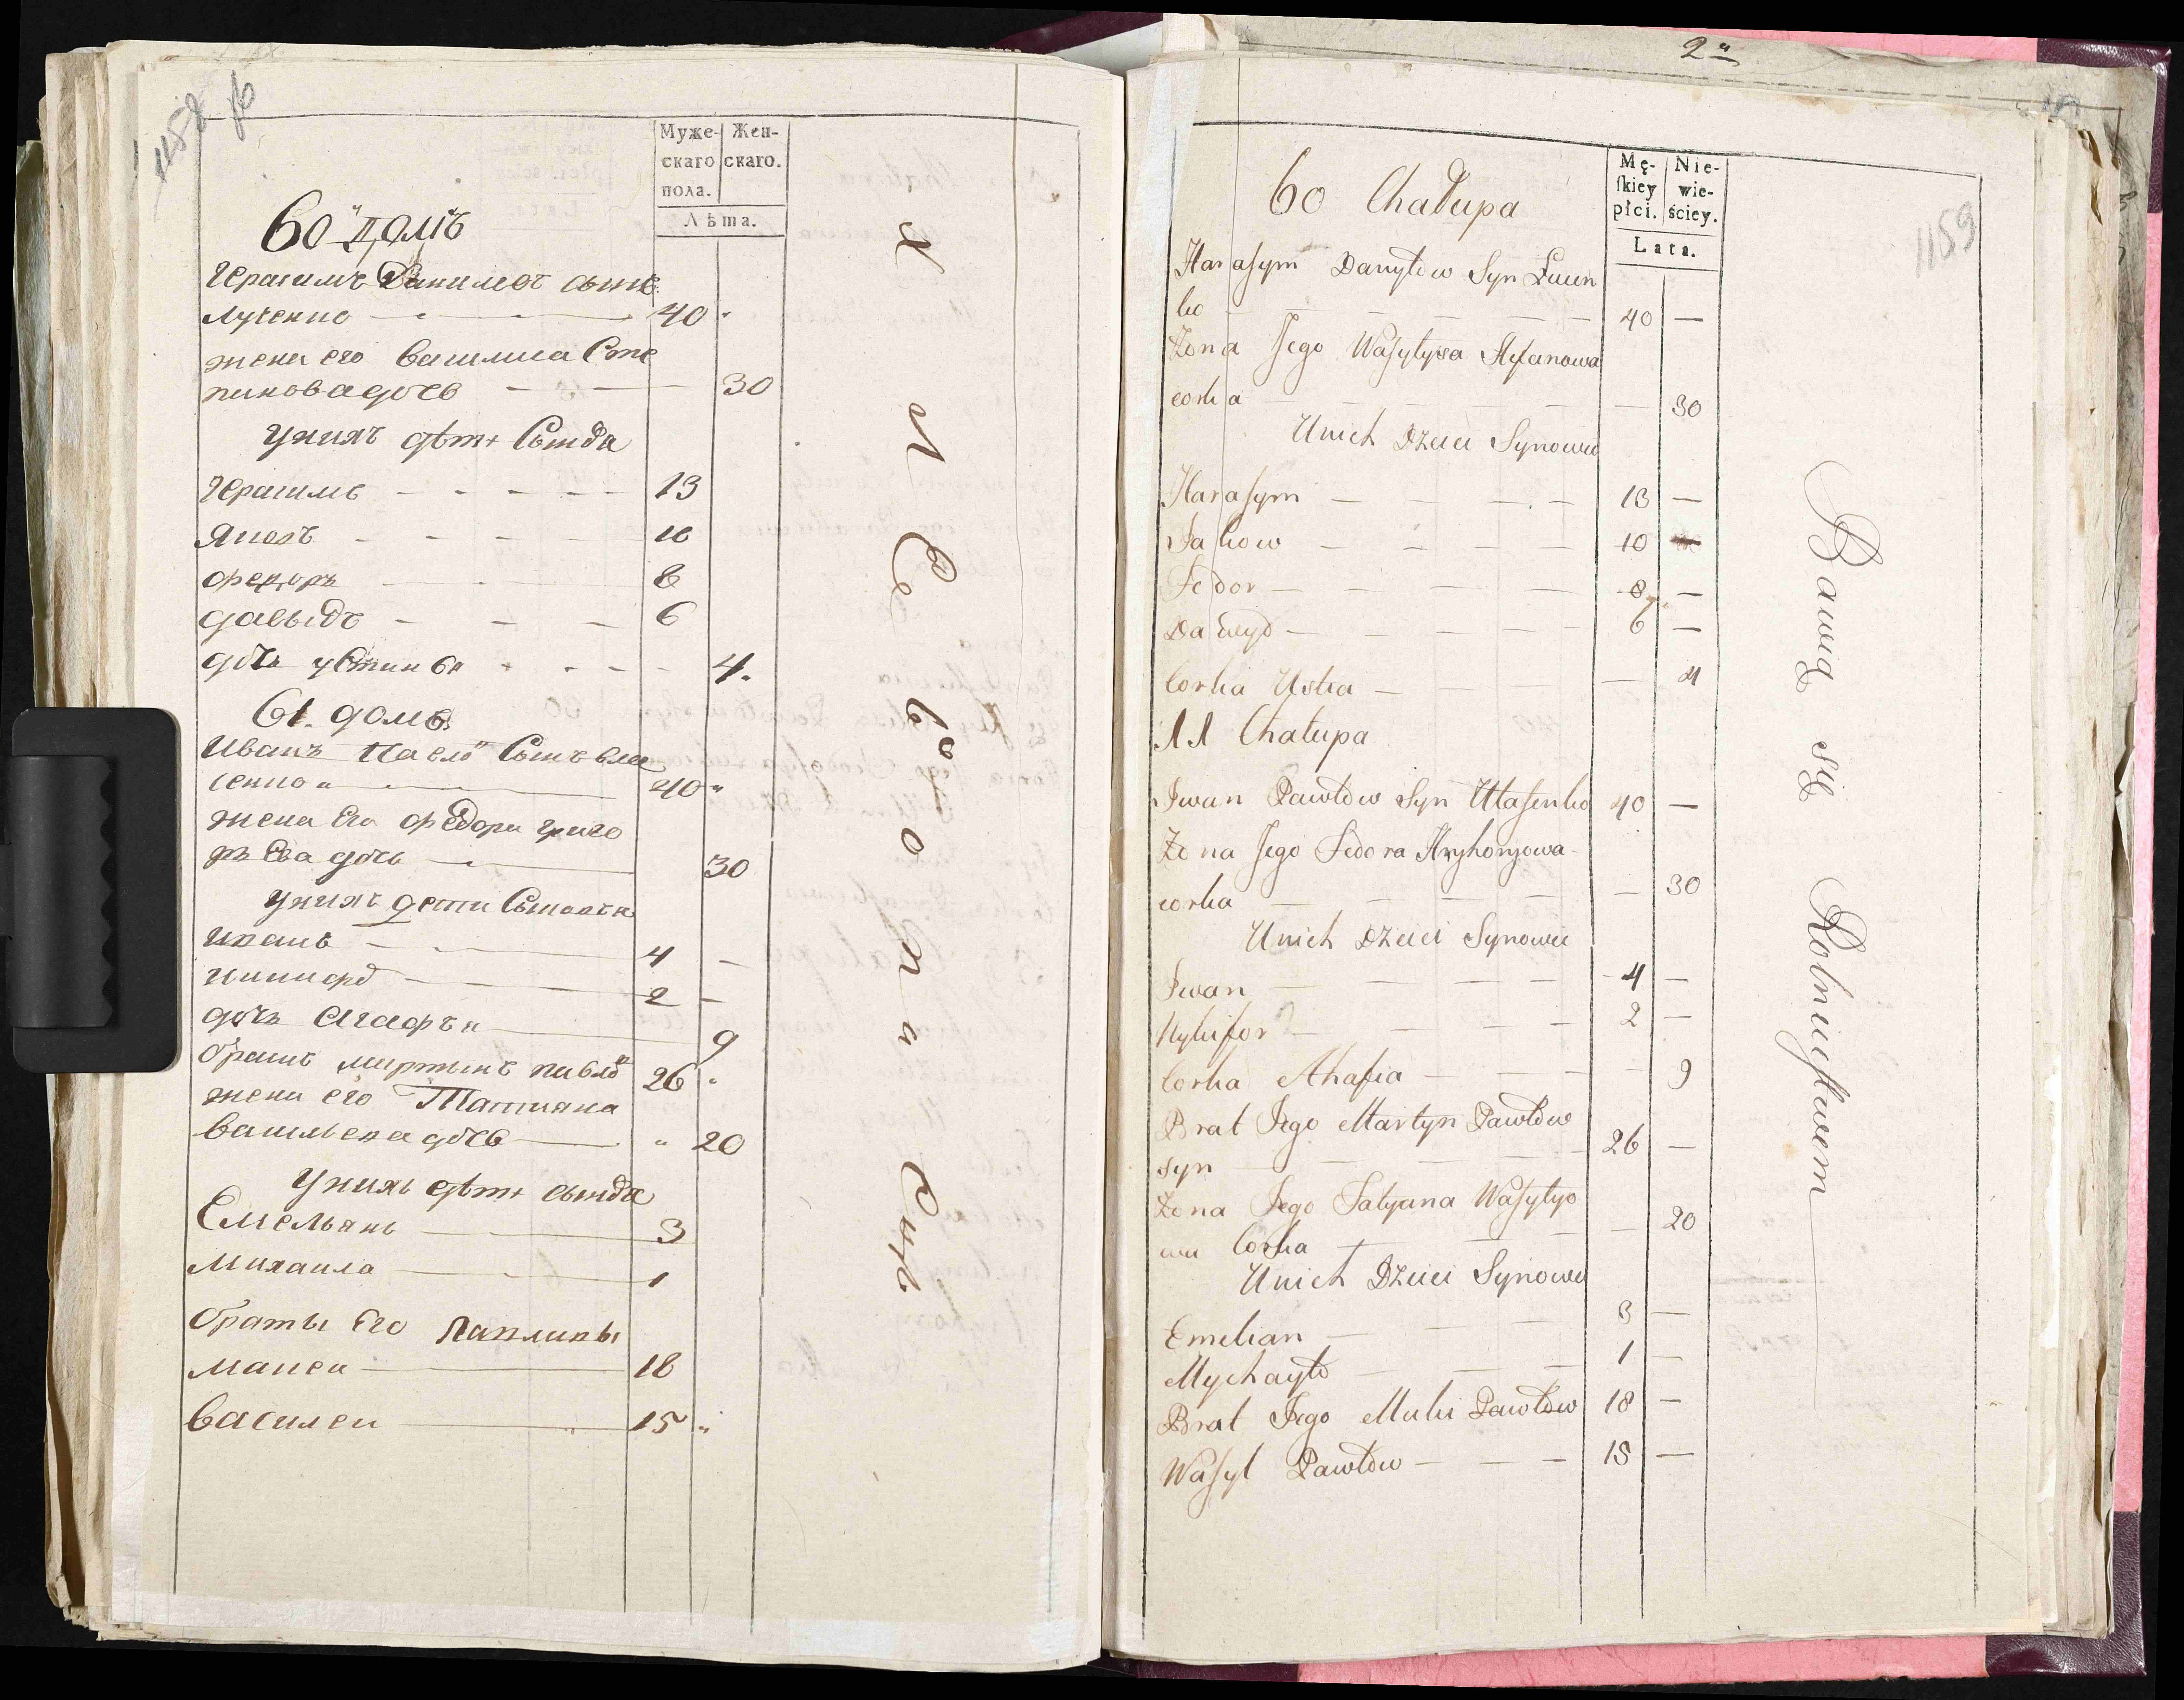 1158
Муже-
скаго
пола.
Жен-
скаго.
Лѣта.
60й домъ
Герасимъ Данилов сынъ
Луценко 40
жена его Василиса Сте
панова дочь 30
у них дѣти Сынов̾а
Герасимъ 13
Яковъ 10
Федоръ 8
Давыдъ 6
дочь устинья 4.
61. домъ
Иванъ Павло Сынъ вла
сенко 40
жена Его Федора григо
рьева дочь 30
у нихъ дети Сыновья
Иванъ 4 —
Никифор 2 —
дочь Агафья 9
братъ мартынъ павло 26
жена его Татиана
васильева дочь 20
у нихъ дѣти сынов̾а
Емельянъ 3
Михаила 1
браты Его павловы
Мокей 18
василей 15
Хлебопашець
2
1159
Mę-
skiey
płci.
Nie-
wie-
ściey.
Lata.
60 Chałupa
Harasym Danyłow Syn Łucen
ko 40 —
Żona Jego Wasylysa Stefanowa
corka — 30
Unich Dzieci Synowie
Harasym 13 —
Jakow 10 —
Fedor 8 —
Dawyd 6 —
Corka Ustia — 4
Chałupa
Iwan Pawłow Syn Własenko 40 —
Żona Jego Fedora Hryhoryowa
corka — 30
Unich Dzieci Synowie
Iwan 4 —
Nykifor 2 —
Corka Ahafia — 9
Brat Jego Martyn Pawłow
syn 26 —
Żona Jego Tatyana Wasylyo
wa Corka — 20
Unich Dzieci Synowie
Emelian 3 —
Mychayło 1 —
Brat Jego Mukii Pawłow 18 —
Wasyl Pawłow 15 —
Bawią się Rolnictwem